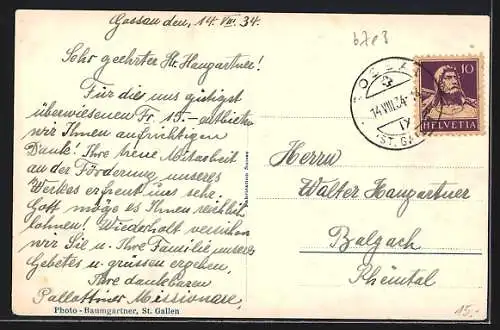 Gossau den, 14. VIII. 34.
Sehr geehrter Hr. Haugartner!
Für die uns gütigst
überwiesenen Fr. 15.- entbieten
wir Ihnen aufrichtigen
Dank! Ihre treue Mitarbeit
an der Förderung unseres
Werkes erfreut uns sehr.
Gott möge es Ihnen reichlich
lohnen! Wiederholt versichern
wir Sie u. Ihre Familie unseres
Gebetes u. grüssen ergeben,
Ihre dankbaren
Pallottiner Missionare,
Photo - Baumgartner, St. Gallen
14.VIII.34
ST. GALLEN
10
HELVETIA
Herrn
Walter Haugartner
Balgach
Rheintal
15.-